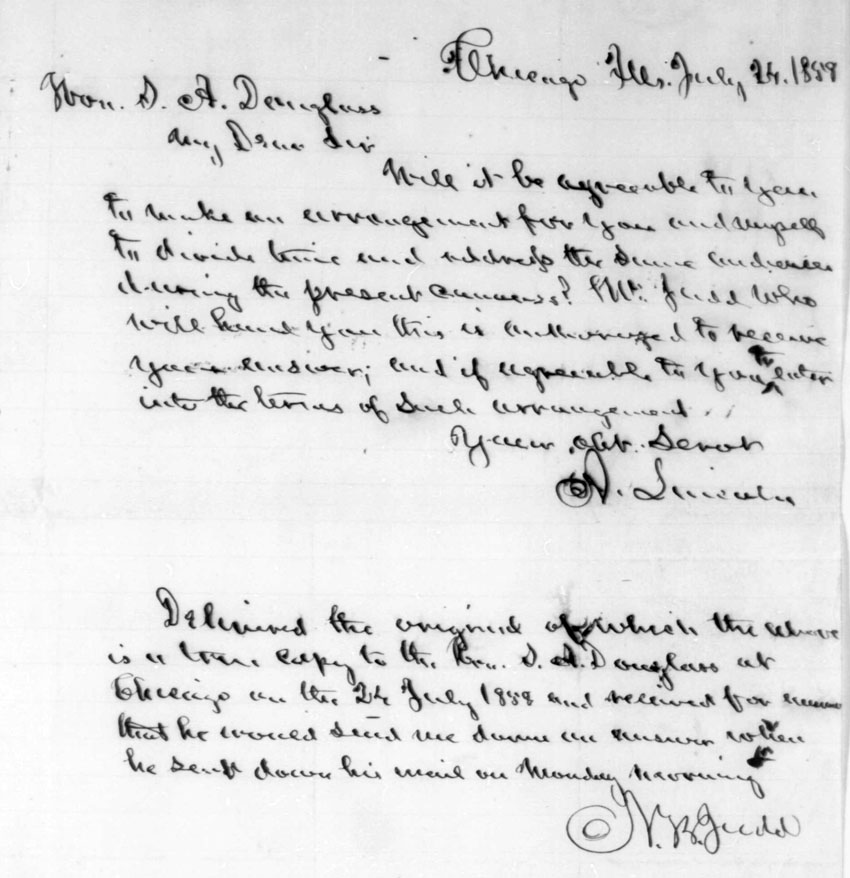 Chicago Ills. July, 24. 1858
Hon. S. A. Douglass
My Dear Sir
Will it be agreeable to you
to make an arrangement for you and myself
to divide time and address the same audiences
during the present canvass? Mr. Judd who
will hand you this is authorized to receive
your answer; and if agreeable to you to enter
into the terms of such arrangement.
Your Obt. Servt
A. Lincoln
Delivered the original of which the above
is a true copy to the Hon. S. A. Douglass at
Chicago on the 24 July 1858 and received for answer
that he would send me down an answer when
he sent down his mail on Monday morning
N. B. Judd